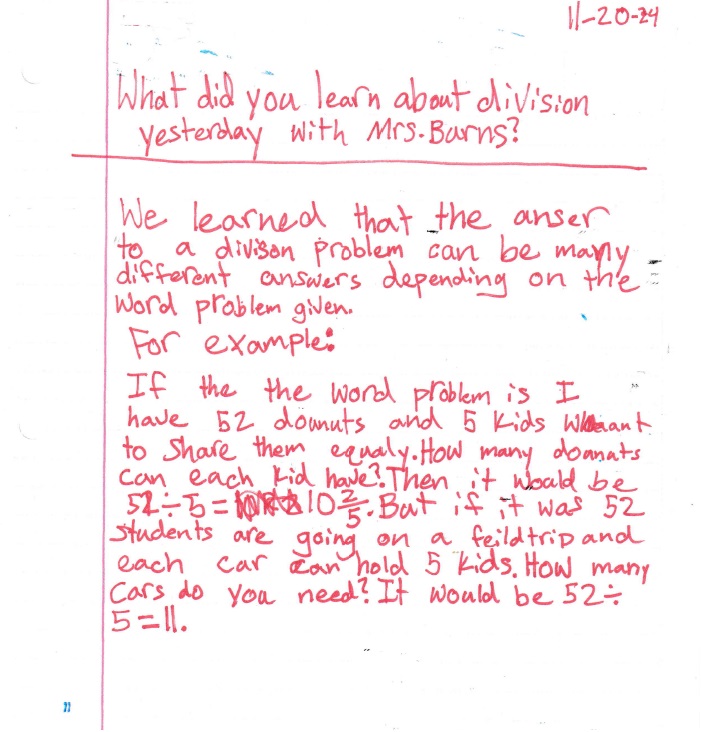 11-20-24
What did you learn about division
yesterday with Mrs. Burns?
We learned that the anser
to a divison problem can be many
different answers depending on the
word problem given.
For example:
If the the word problem is I
have 52 dounuts and 5 kids want
to share them equaly. How many doanats
can each kid have? Then it would be
52÷5= 10 2/5. But if it was 52
students are going on a feildtrip and
each car can hold 5 kids. How many
cars do you need? It would be 52÷
5=11.